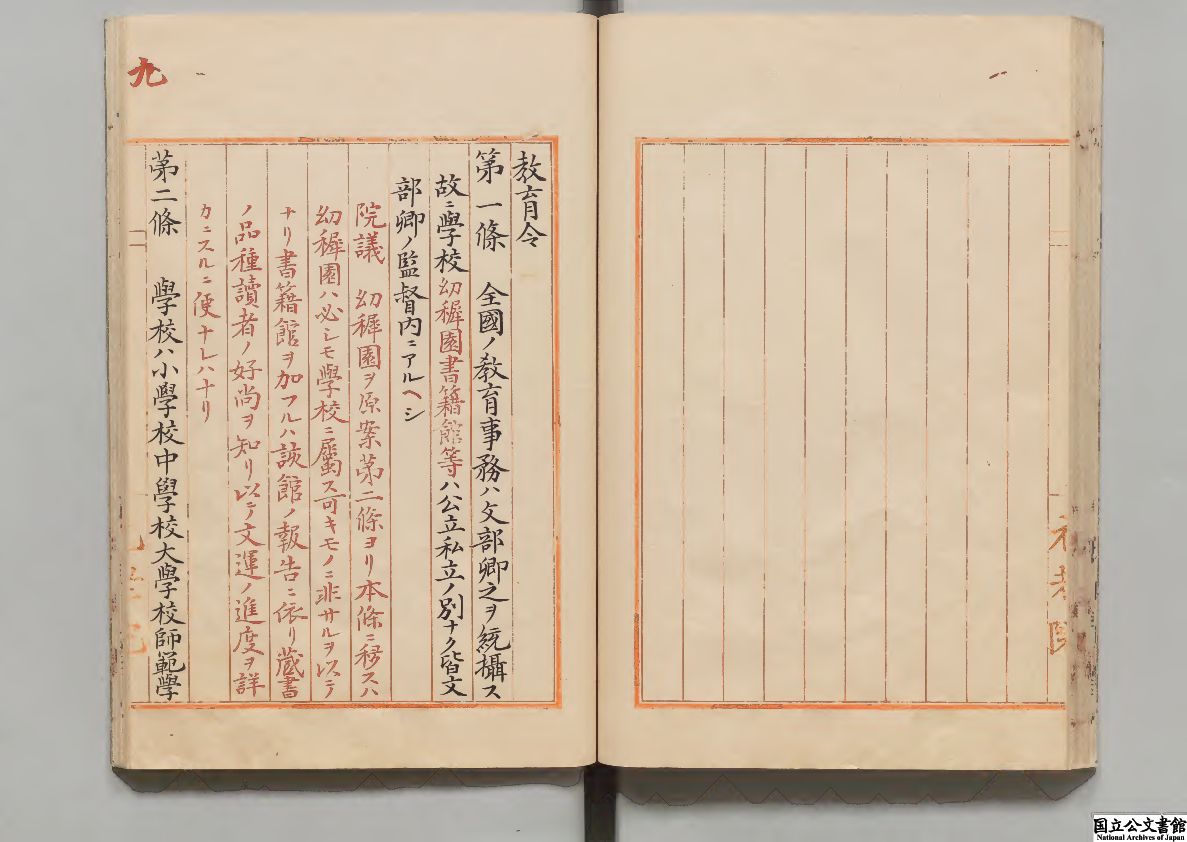 教育令
第一條　全國ノ敎育事務ハ文部卿之ヲ統攝ス
故ニ學校幼穉園書籍館等ハ公立私立ノ別ナク皆文
部卿ノ監督内ニアルヘシ
院議　幼穉園ヲ原案第二條ヨリ本條ニ移スハ
幼穉園ハ必シモ學校ニ屬ス可キモノニ非サルヲ以テ
ナリ書籍館ヲ加フルハ該館ノ報告ニ依リ藏書
ノ品種讀者ノ好尚ヲ知リ以テ文運ノ進度ヲ詳
カニスルニ便ナレハナリ
第二條　學校ハ小學校中學校大學校師範學
九
国立公文書館
National Archives of Japan